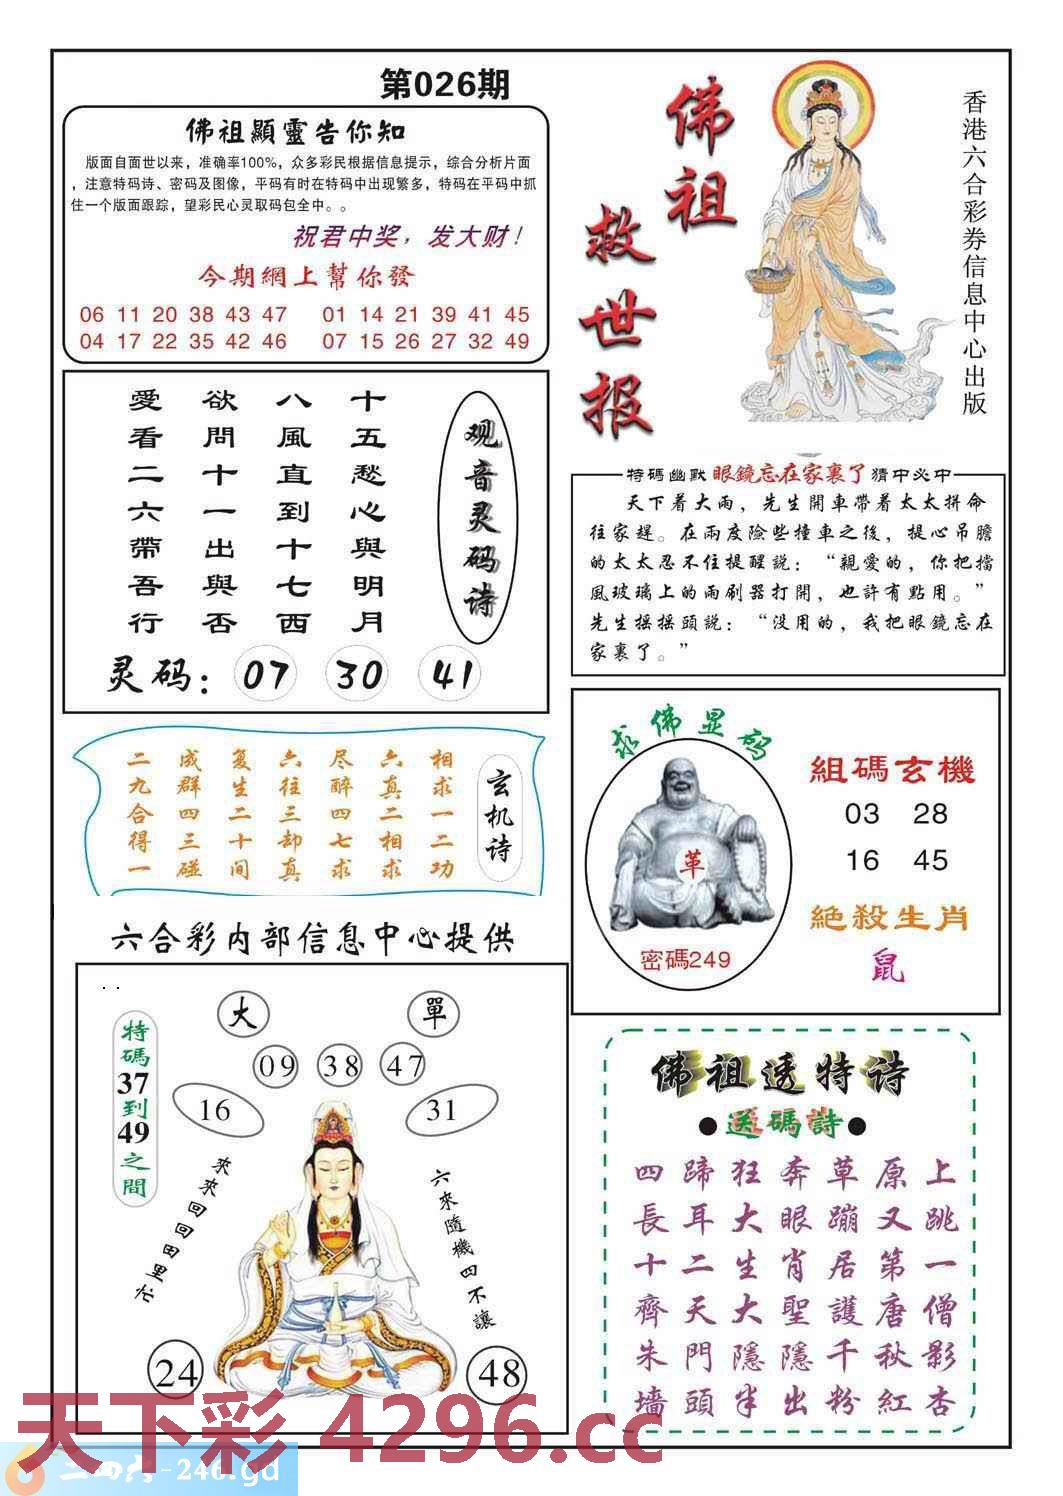 第026期
佛祖顯靈告你知
版面自面世以来，准确率100%，众多彩民根据信息提示，综合分析片面
，注意特码诗、密码及图像，平码有时在特码中出现繁多，特码在平码中抓
住一个版面跟踪，望彩民心灵取码包全中。。
祝君中奖，发大财！
今期網上幫你發
06 11 20 38 43 47 01 14 21 39 41 45
04 17 22 35 42 46 07 15 26 27 32 49
佛祖
救世报
香港六合彩券信息中心出版
观音灵码诗
十五愁心與明月
八風直到十七西
欲問十一出與否
愛看二六帶吾行
灵码：07 30 41
特碼幽默 眼鏡忘在家裏了 猜中必中
天下着大雨，先生開車帶着太太拼命
往家趕。在兩度險些撞車之後，提心吊膽
的太太忍不住提醒説：“親愛的，你把擋
風玻璃上的雨刷器打開，也許有點用。”
先生摇摇頭説：“没用的，我把眼鏡忘在
家裏了。”
玄机诗
相求一二功
六真二相求
尽醉四七求
六往三却真
复生二十间
成群四三碰
二九合得一
求佛显码
革
密碼249
組碼玄機
03 28
16 45
絶殺生肖
鼠
六合彩内部信息中心提供
特碼37到49之間
大
單
09
38
47
16
31
來來回回田里忙
六來隨機四不讓
24
48
佛祖透特诗
●送碼詩●
四蹄狂奔草原上
長耳大眼蹦又跳
十二生肖居第一
齊天大聖護唐僧
朱門隱隱千秋影
墻頭半出粉紅杏
天下彩 4296.cc
二四六-246.gd